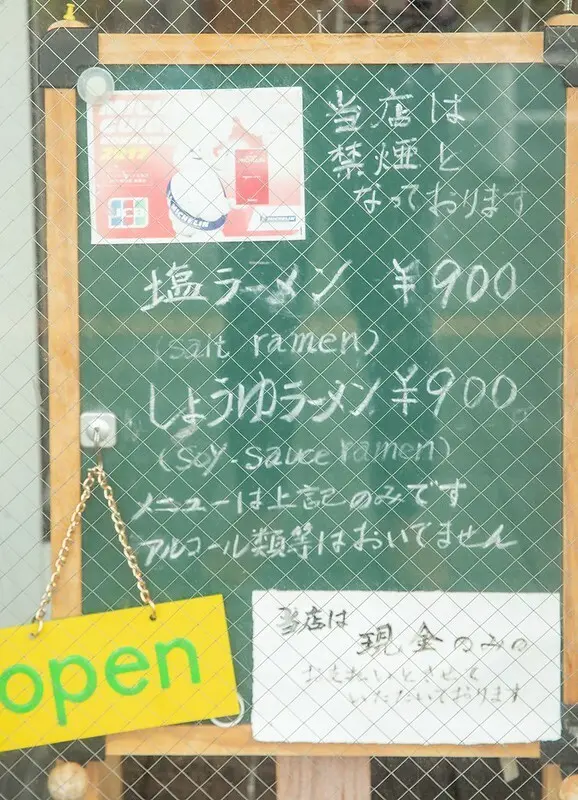 当店は
禁煙と
なっております
JCB
MICHELIN
塩ラーメン ¥900
(salt ramen)
しょうゆラーメン ¥900
(Soy-sauce ramen)
メニューは上記のみです
アルコール類等はおいてません
open
当店は
現金のみの
お支払いとさせて
いただいております